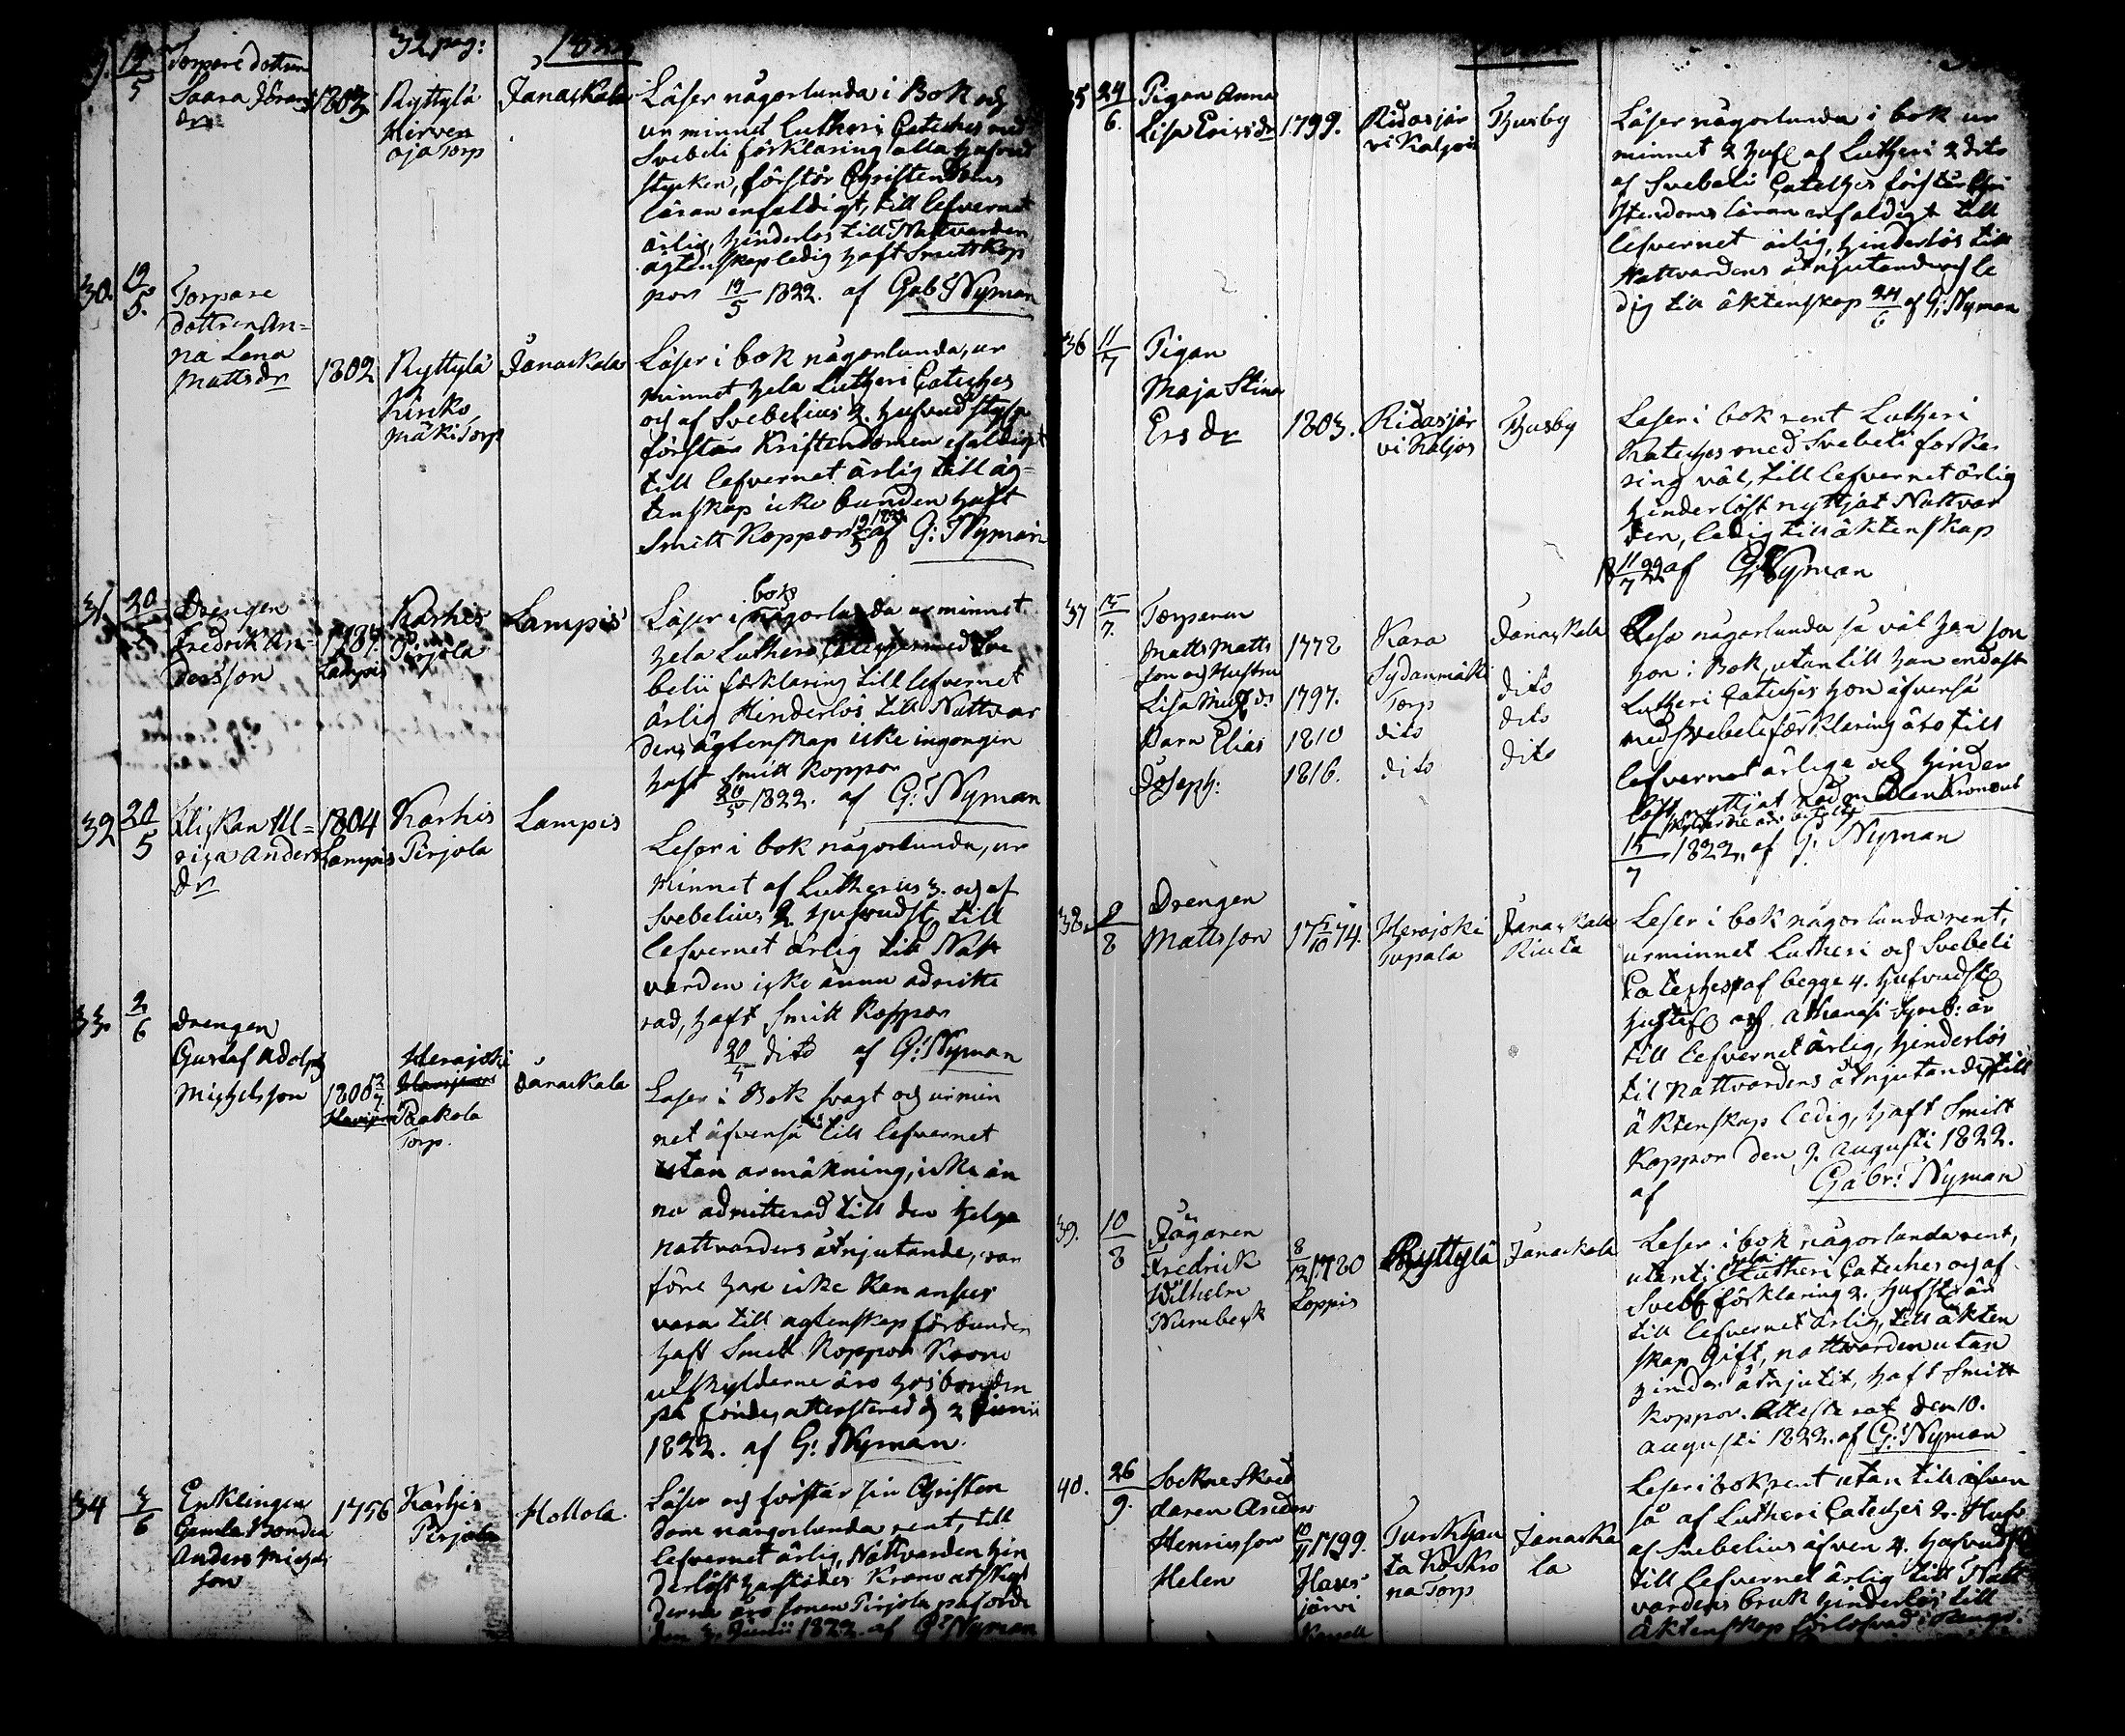 32 pag:
19/5 Torpare dottren
Saara Jörans
dr 1803 Ryttylä Janackala
Hirven
oja Torp
Läser någorlunda i Bok och
ur minnet Lutheri Cateches med
Svebeli förklaring alla hufvud
stycken, förstår Christendoms
läran enfaldigt, till lefvernet
ärlig, hinderlös till Nattvarden
ägtenskap ledig haft Smitt Kop
por 19/5 1822. af Gab Nyman
30. 19/5. Torpare
dottren An=
na Lena
Mattsdr 1802 Ryttylä Janackala
Kirko
mäki Torp
Läser i bok någorlunda, ur
minnet hela Lutheri Cateches
och af Svebelius 2. hufvud styck
förstår Kristendomen efaldigt
till lefvernet ärlig till äg=
tenskap icke bunden haft
Smitt Koppor 19/5 1822 af G: Nyman
31 20/5 Drengen
Fredrik An=
dersson 1787. Lampis Karhis Pirjola Lampis
Läser i bok någorlunda ur minnet
hela Lutheri Cateches med Sve
belii förklaring till lefvernet
ärlig Hinderlös till Nattvar
den, ägtenskap icke ingongin
haft Smitt Koppor
20/5 1822. af G: Nyman
32 20/5 Flickan Ul=
rica Anders
dr 1804 Lampis Karhis Pirjola Lampis
Leser i bok någorlunda, ur
minnet af Lutherus 3. och af
Svebelius 2 hufvudst, till
lefvernet ärlig till Natt
varden icke ännu admitte
rad, haft Smitt Koppor
20/5 dito af G: Nyman
33 2/6 Drengen
Gustaf Adolph
Michelsson 1800 Herajoki Janackala
Pakola
Torp.
Laser i Bok svagt och ur min
net äfvenså till lefvernet
utan anmäkning, icke än
nu admitterad till den helga
nattvardens åtnjutande, var
före han icke kan anses
vara till agtenskap förbunden
haft Smitt Koppor Krono
utskylderne äro hos bonden
på fordr, attesterad d 2 Junii
1822. af G: Nyman.
34 3/6 Enklingen
Gamla Bonden
Anders Michels
son 1756 Karhis Pirjola Hollola
Läser och förstår sin Christen
dom någorlunda rent, till
lefvernet ärlig, Nattvarden hin
derlöst Krono utskyl
derne äro sonen Pirjola påförde
den 3. Junii 1822. af G: Nyman
35 24/6. Pigan Anna
Lisa Ericsdr 1799. Ridasjär
vi Kaljos Thusby
Läser någorlunda i bok ur
minnet 2 Huf af Lutheri 2 dito
af Svebeli Cateches förstår Chri
stendoms läran enfaldigt till
lefvernet ärlig, hinderlös till
Nattvardens åtnjutande och le
dig till äktenskap 24/6 af G: Nyman
36 11/7 Pigan
Maja Stina
Ersdr 1803. Ridasjär
vi Kaljos Thusby
Leser i bok rent Lutheri
Kateches med Svebeli förkla
ring väl, till lefvernet ärlig
hinderlöst nyttjat Nattvar
den, ledig till äktenskap
11/7 22 af G: Nyman
37 15/7. Torparen
Matts Matts
son och Hustru 1772 Kara Janackala
Lisa 1797. Sydänmäki Torp dito
Barn Elias 1810 dito dito
Joseph: 1816. dito dito
Lesa någorlunda så väl han som
hon i Bok, utan till han endast
Lutheri Cateches hon äfvenså
med Svebeli förklaring äro till
lefvernet ärliga och hinder
löst nyttjat nådmedlen Kronout
skylderne
15/7 1822. af G. Nyman
38. 9/8 Drengen
Mattsson 17 5/10 74. Herajoki
Tupala Janackala
Leser i bok någorlunda rent,
urminnet Lutheri och Svebeli
Cateches af begge 4. hufvudst
hustafl och Athanasi Symb: är
till lefvernet ärlig, hinderlös
til nattvardens åtnjutande, till
äktenskap ledig, haft Smitt
Koppor den 9. Augusti 1822.
af Gabr: Nyman
39. 10/8 Jägaren
Fredrick
Wilhelm
Numberk 8/12 1780 Loppis Ryttylä Janackala
Leser i bok någorlunda rent,
utantill hela Lutheri Cateches och af
Sveb förklaring 2. hufst är
till lefvernet ärlig, till äkten
skap gift, nattvarden utan
hinder åtnjutit, haft Smitt
Koppor. Attesterat den 10.
Augusti 1822. af G: Nyman
40. 26/9. Sockneskred
daren Anders
Henricsson
Helen 10/11 1799. Haus
järvi
Kapell Turckhau
ta Koskro
na Torp Janacka
la
Leser i bok rent utan till äfven
så af Lutheri Cateches 2. Huf
af Svebelius äfven 4. hufvudst
till lefvernet ärlig till Natt
vardens bruk hinderlös till
äktenskap förlofvad i Pargo.